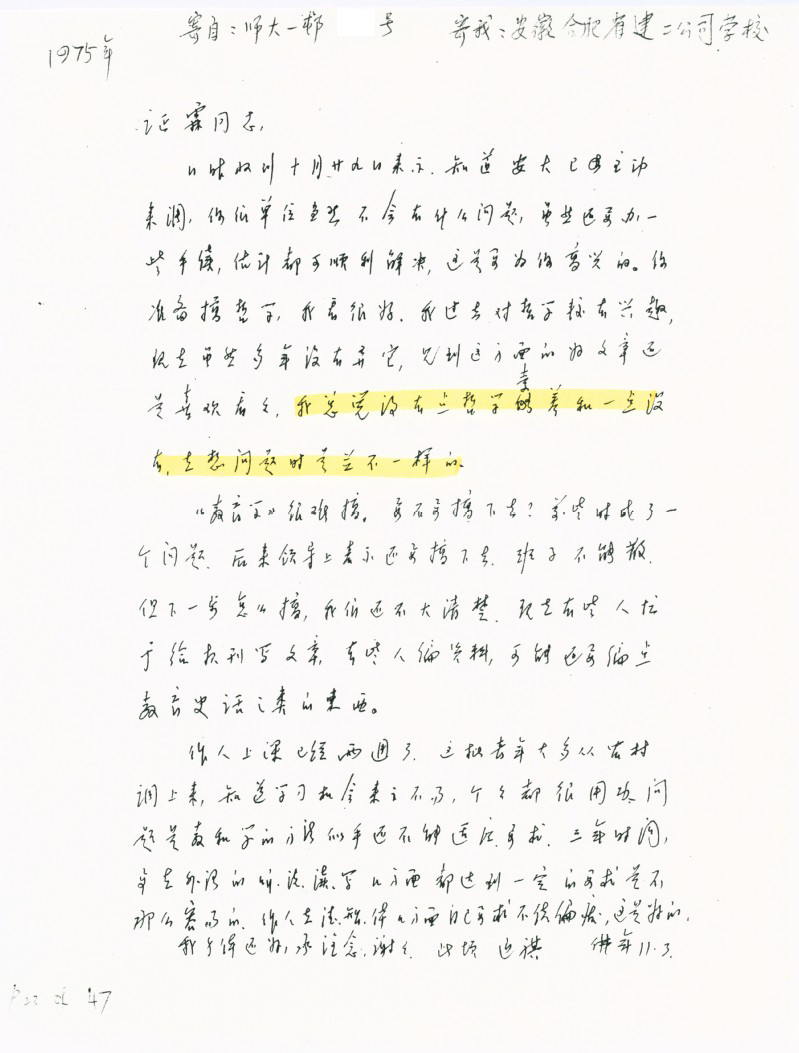 寄自：师大一邨 号 寄我：安徽合肥省建二公司学校
1975年
证霖同志，
日昨收到十月廿九日来示，知道安大已要主动
来调，你们单位当然不会有什么问题，虽然还要办一
些手续，估计都可顺利解决，这是要为你高兴的。你
准备搞哲学，我看很好。我过去对哲学颇有兴趣，
现在虽然多年没有弄它，见到这方面的好文章还
是喜欢看看，我总觉没有点哲学修养和一点没
有，去想问题时是并不一样的。
《教育学》很难搞。要不要搞下去？前些时成了一
个问题。后来领导上表示还要搞下去，班子不能散。
但下一步怎么搞，我们还不大清楚。现在有些人忙
于给报刊写文章，有些人编资料，可能还要编点
教育史话之类的东西。
作人上课已经两週了。这批青年大多从农村
调上来，知道学习机会来之不易，个个都很用功。问
题是教和学的方法似乎还不能适应要求。三年时间，
要在外语的听、说、读、写几方面都达到一定的要求是不
那么容易的。作人在德智体几方面自己要求不供偏废，这是好的。
我身体还好，承注念，谢谢。此颂 近祺 佛年 11.3.
47